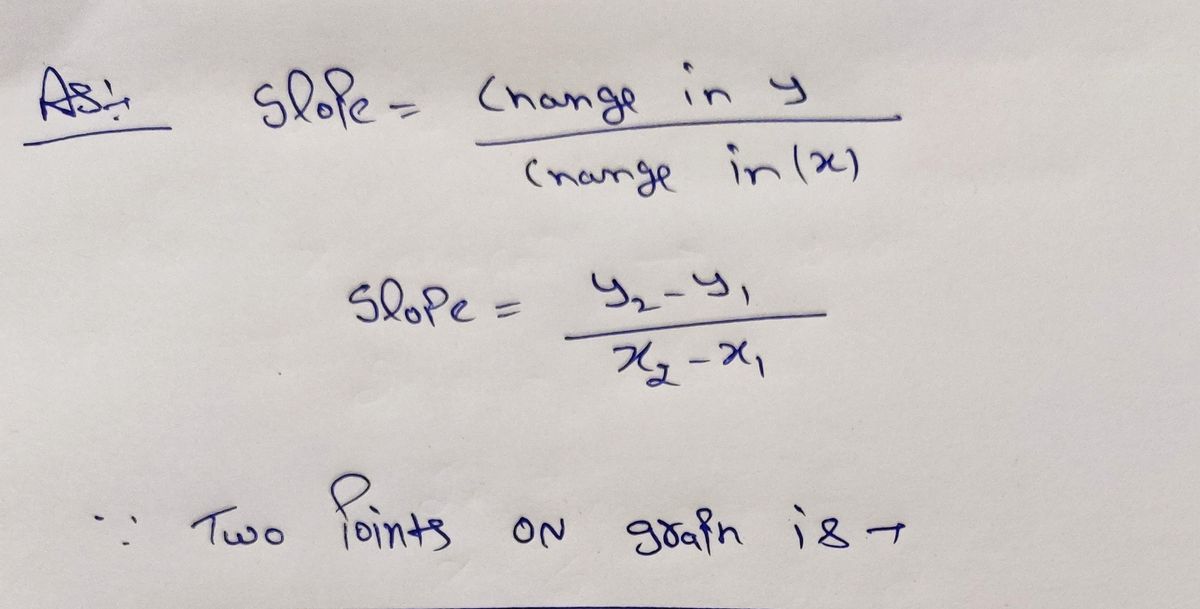 As:- Slope = Change in y
Change in (x)
Slope = y₂ - y₁
x₂ - x₁
∵ Two Points ON graph is →